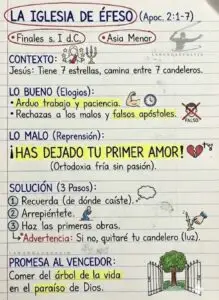 LA IGLESIA DE ÉFESO (Apoc. 2:1-7)
• Finales s. I d.C. • Asia Menor
CONTEXTO:
Jesús: Tiene 7 estrellas, camina entre 7 candeleros.
LO BUENO (Elogios):
• Arduo trabajo y paciencia.
• Rechazas a los malos y falsos apóstoles.
FALSO
LO MALO (Reprensión):
¡HAS DEJADO TU PRIMER AMOR!
(Ortodoxia fría sin pasión).
SOLUCIÓN (3 Pasos):
1 Recuerda (de dónde caíste).
2 Arrepiéntete.
3 Haz las primeras obras.
↳ Advertencia: Si no, quitaré tu candelero (luz).
PROMESA AL VENCEDOR:
Comer del árbol de la vida
en el paraíso de Dios.